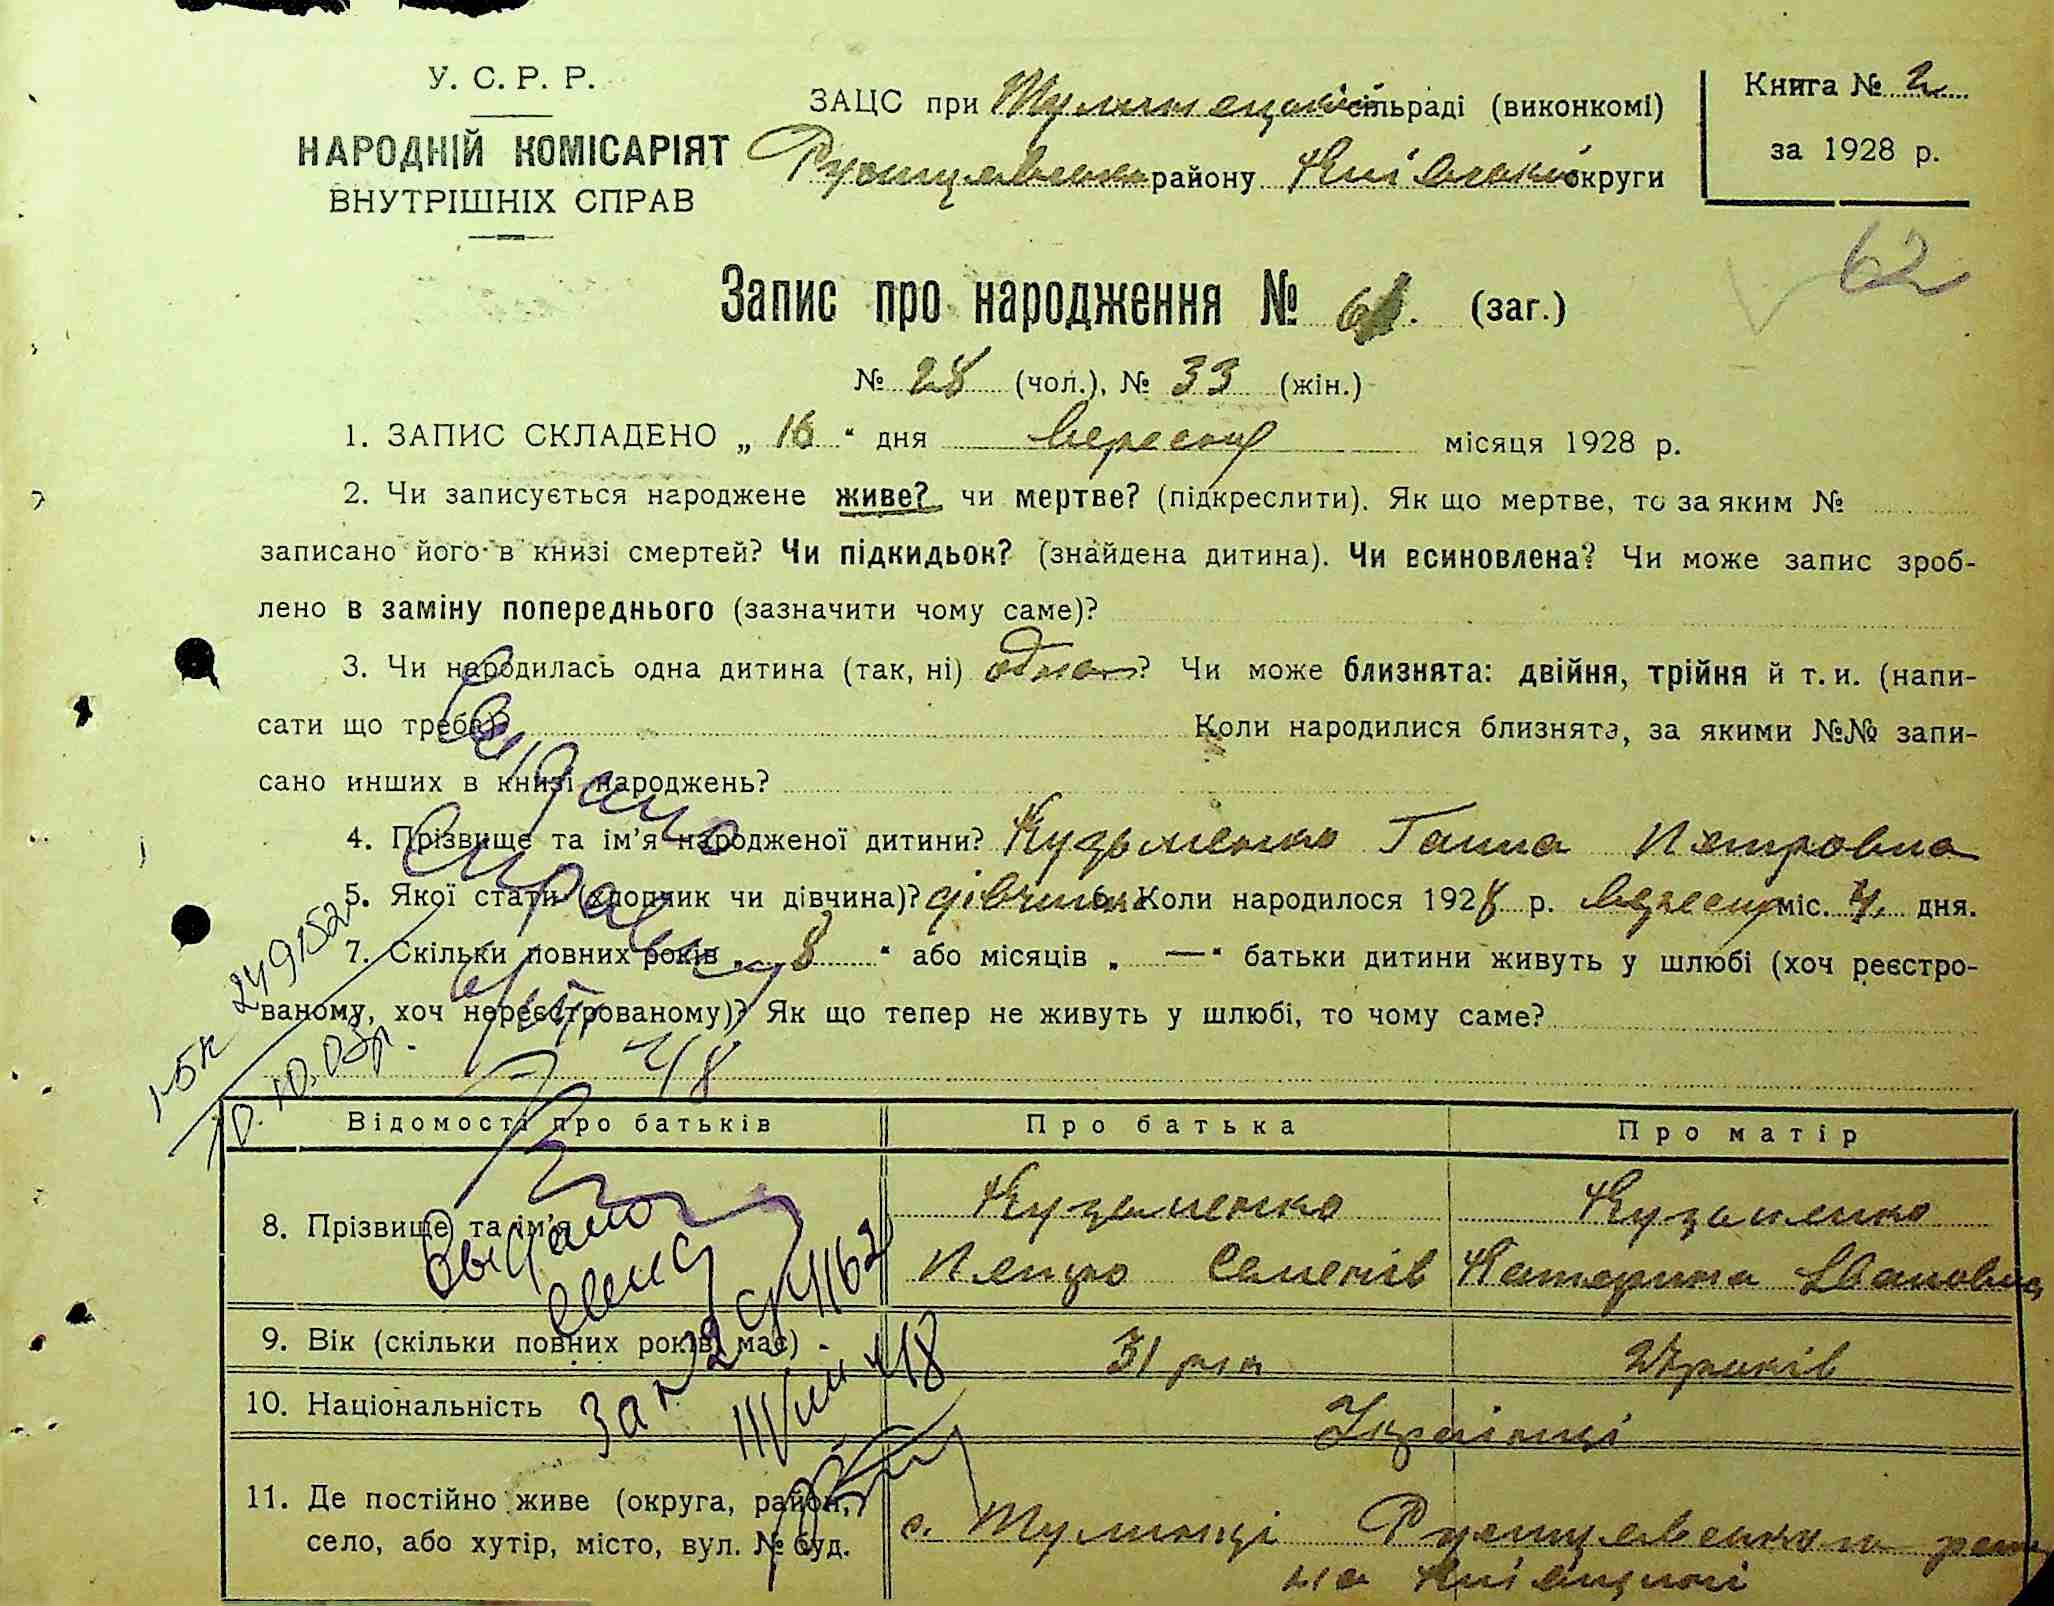 У. С. Р. Р.
НАРОДНІЙ КОМІСАРІЯТ
ВНУТРІШНІХ СПРАВ
ЗАЦС при сільраді (виконкомі)
району Київської округи
Книга № 2
за 1928 р.
62
Запис про народження № 61. (заг.)
№ 28 (чол.), № 33 (жін.)
1. ЗАПИС СКЛАДЕНО „ 16 “ дня вересня місяця 1928 р.
2. Чи записується народжене живе? чи мертве? (підкреслити). Як що мертве, то за яким №
записано його в книзі смертей? Чи підкидьок? (знайдена дитина). Чи всиновлена? Чи може запис зроб-
лено в заміну попереднього (зазначити чому саме)?
3. Чи народилась одна дитина (так, ні) одна? Чи може близнята: двійня, трійня й т. и. (напи-
сати що треба)? Коли народилися близнята, за якими №№ запи-
сано инших в книзі народжень?
4. Прізвище та ім’я народженої дитини? Кузьменко Ганна Петровна
5. Якої стати (хлопчик чи дівчина)? дівчина 6. Коли народилося 1928 р. вересня міс. 4. дня.
7. Скільки повних років „ 8 “ або місяців „ — “ батьки дитини живуть у шлюбі (хоч реєстро-
ваному, хоч нереєстрованому)? Як що тепер не живуть у шлюбі, то чому саме?
Відомості про батьків Про батька Про матір
8. Прізвище та ім’я Кузьменко Кузьменко
Петро Семенів Катерина Івановна
9. Вік (скільки повних років має) 31 рік 27 років
10. Національність Українці
11. Де постійно живе (округа, район,
село, або хутір, місто, вул. № буд.
с. Тулинці
на Київщині
Видано
справку
48